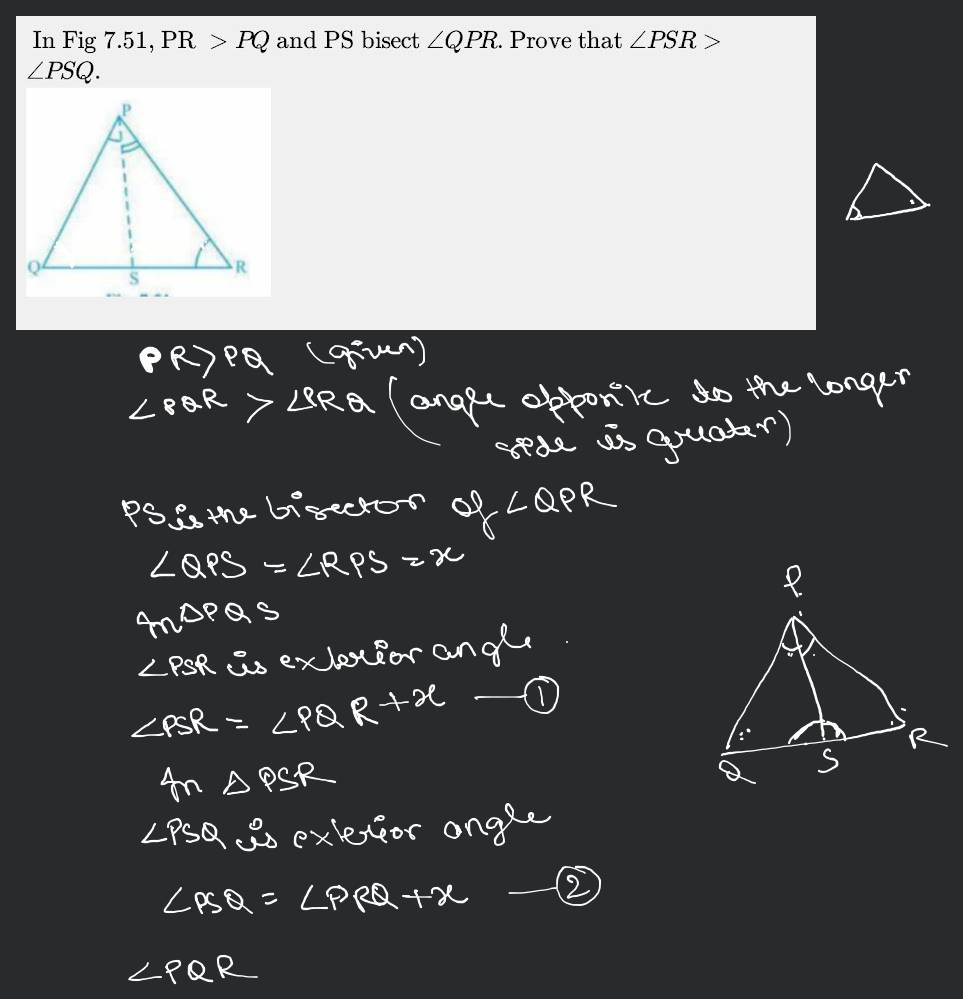 In Fig 7.51, PR > PQ and PS bisect ∠QPR. Prove that ∠PSR >
∠PSQ.
P
Q
S
R
PR>PQ (given)
∠PQR > ∠PRQ (angle opposite to the longer
side is greater)
PS is the bisector of ∠QPR
∠QPS = ∠RPS = x
In △PQS
∠PSR is exterior angle
∠PSR = ∠PQR + x — ①
In △PSR
∠PSQ is exterior angle
∠PSQ = ∠PRQ + x — ②
∠PQR
P
Q
S
R